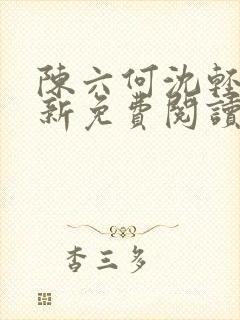 陳六何沈輕
新免費閱讀
杏三多